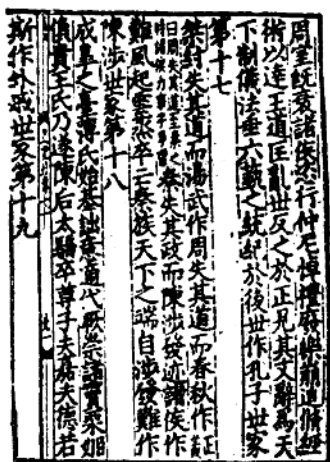 周室既衰諸侯恣行仲尼悼禮廢樂崩追脩經
術以達王道匡亂世反之於正見其文辭爲天
下制儀法垂六藝之統紀於後世作孔子世家
第十七
桀紂失其道而湯武作周失其道而春秋作正義
曰周失其道至秦之時諸侯力事乎爭強秦失其政而陳涉發迹諸侯作
難風起雲蒸卒亡秦族天下之端自涉發難作
陳涉世家第十八
成皋之臺薄氏始基詘意適代厥崇諸竇栗姬
偩貴王氏乃遂陳后太驕卒尊子夫嘉夫德若
斯作外戚世家第十九